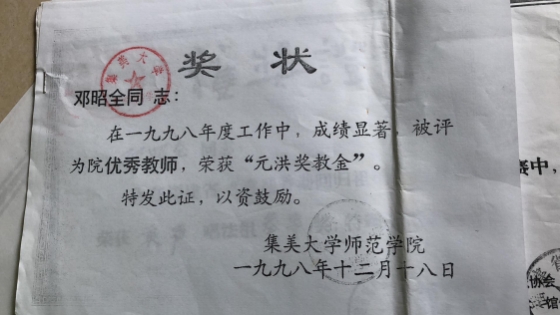 奖状
集美大学
邓昭全同志：
在一九九八年度工作中，成绩显著，被评
为院优秀教师，荣获“元洪奖教金”。
特发此证，以资鼓励。
集美大学师范学院
一九九八年十二月十八日
中，
协会
馆